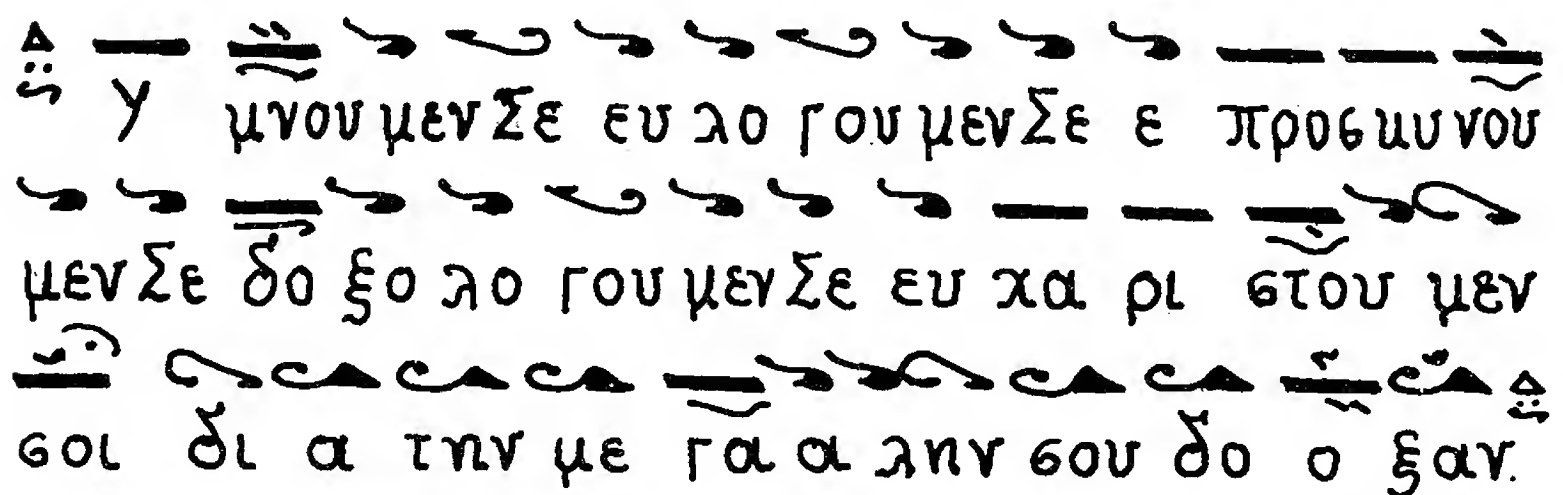 υ μνου μεν Σε ευ λο γου μεν Σε ε προσκυ νου
μεν Σε δο ξο λο γου μεν Σε ευ χα ρι στου μεν
σοι δι α την με γα α λην σου δο ο ξαν.